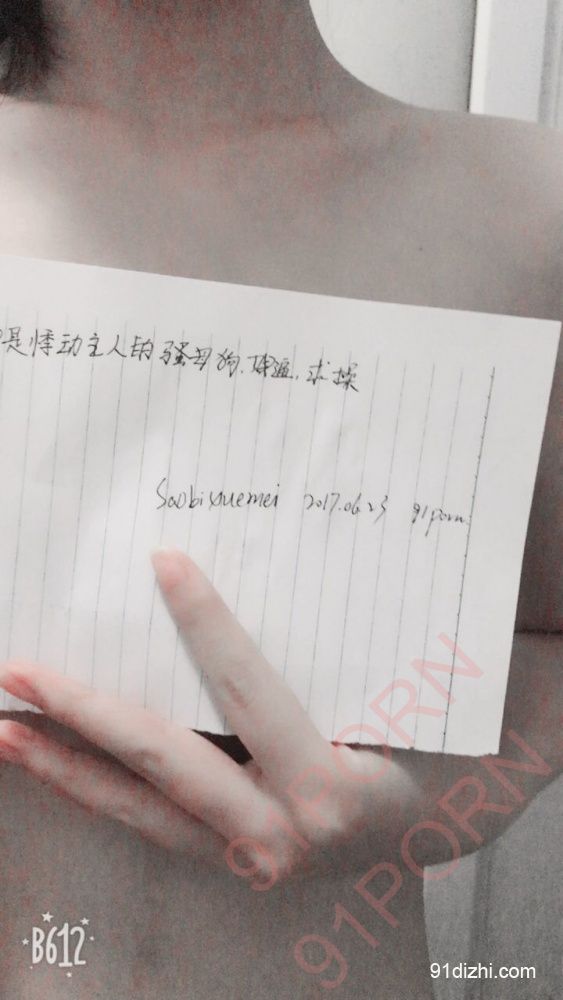 是悸动主人的骚母狗. 求操
Saobixuemei 2017.06.23 91porn
91PORN
91PORN
B612
91dizhi.com